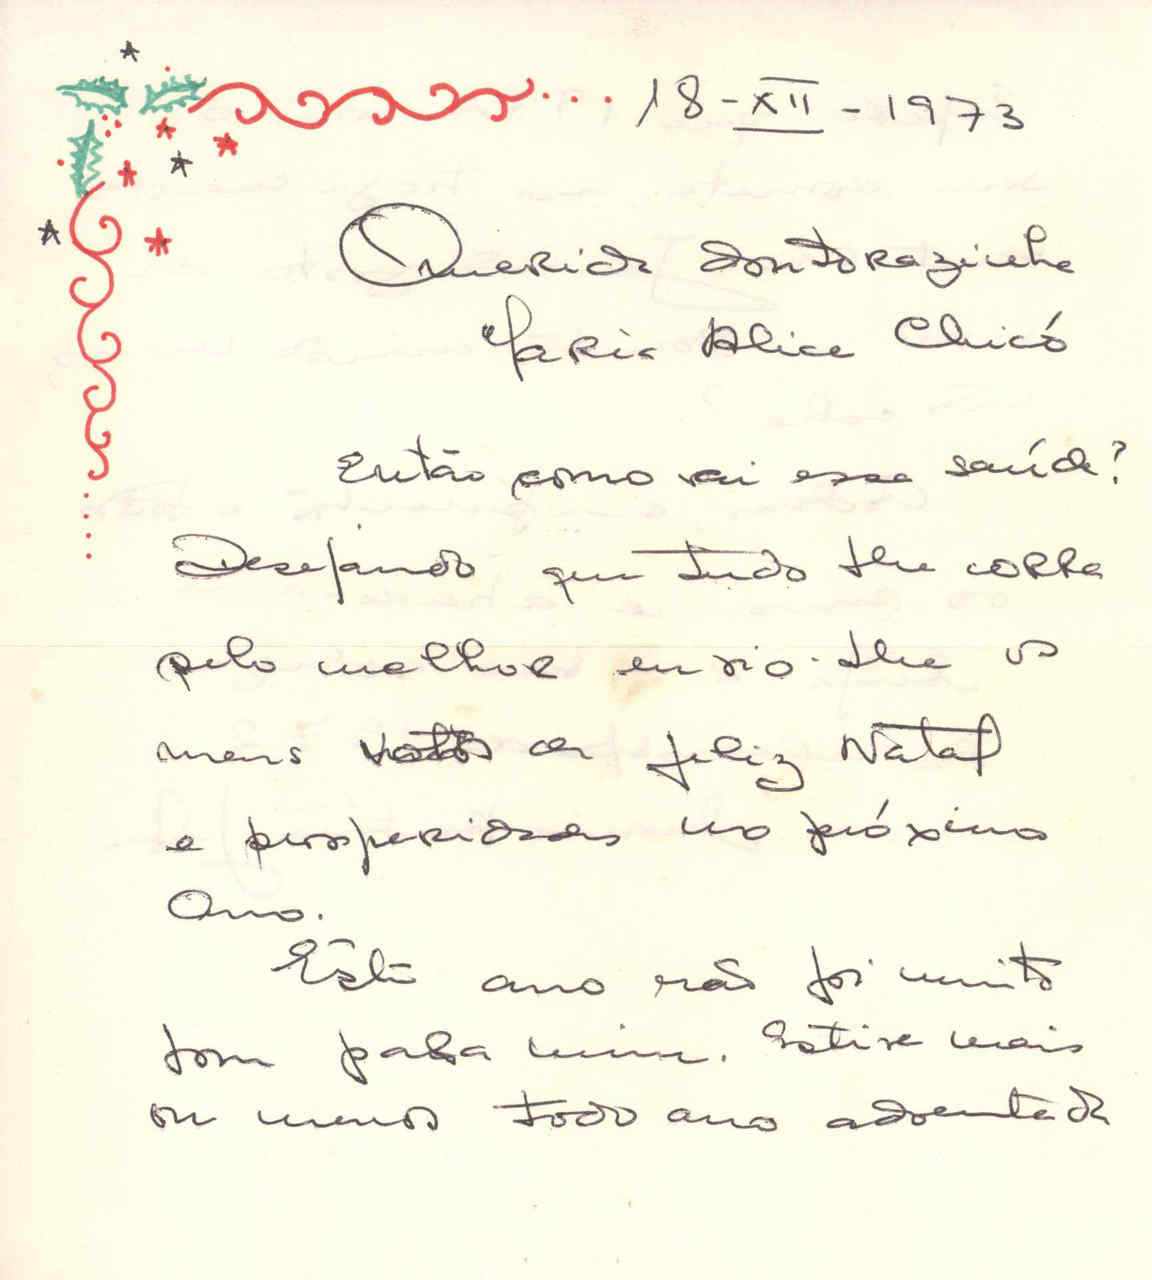 18-XII-1973
Querida doutorazinha
Maria Alice Chicó
Então como vai essa saúde?
Desejando que tudo lhe corra
pelo melhor envio-lhe os
meus votos de feliz Natal
e prosperidades no próximo
Ano.
Este ano não foi muito
bom para mim. Estive mais
ou menos todo ano adoentada